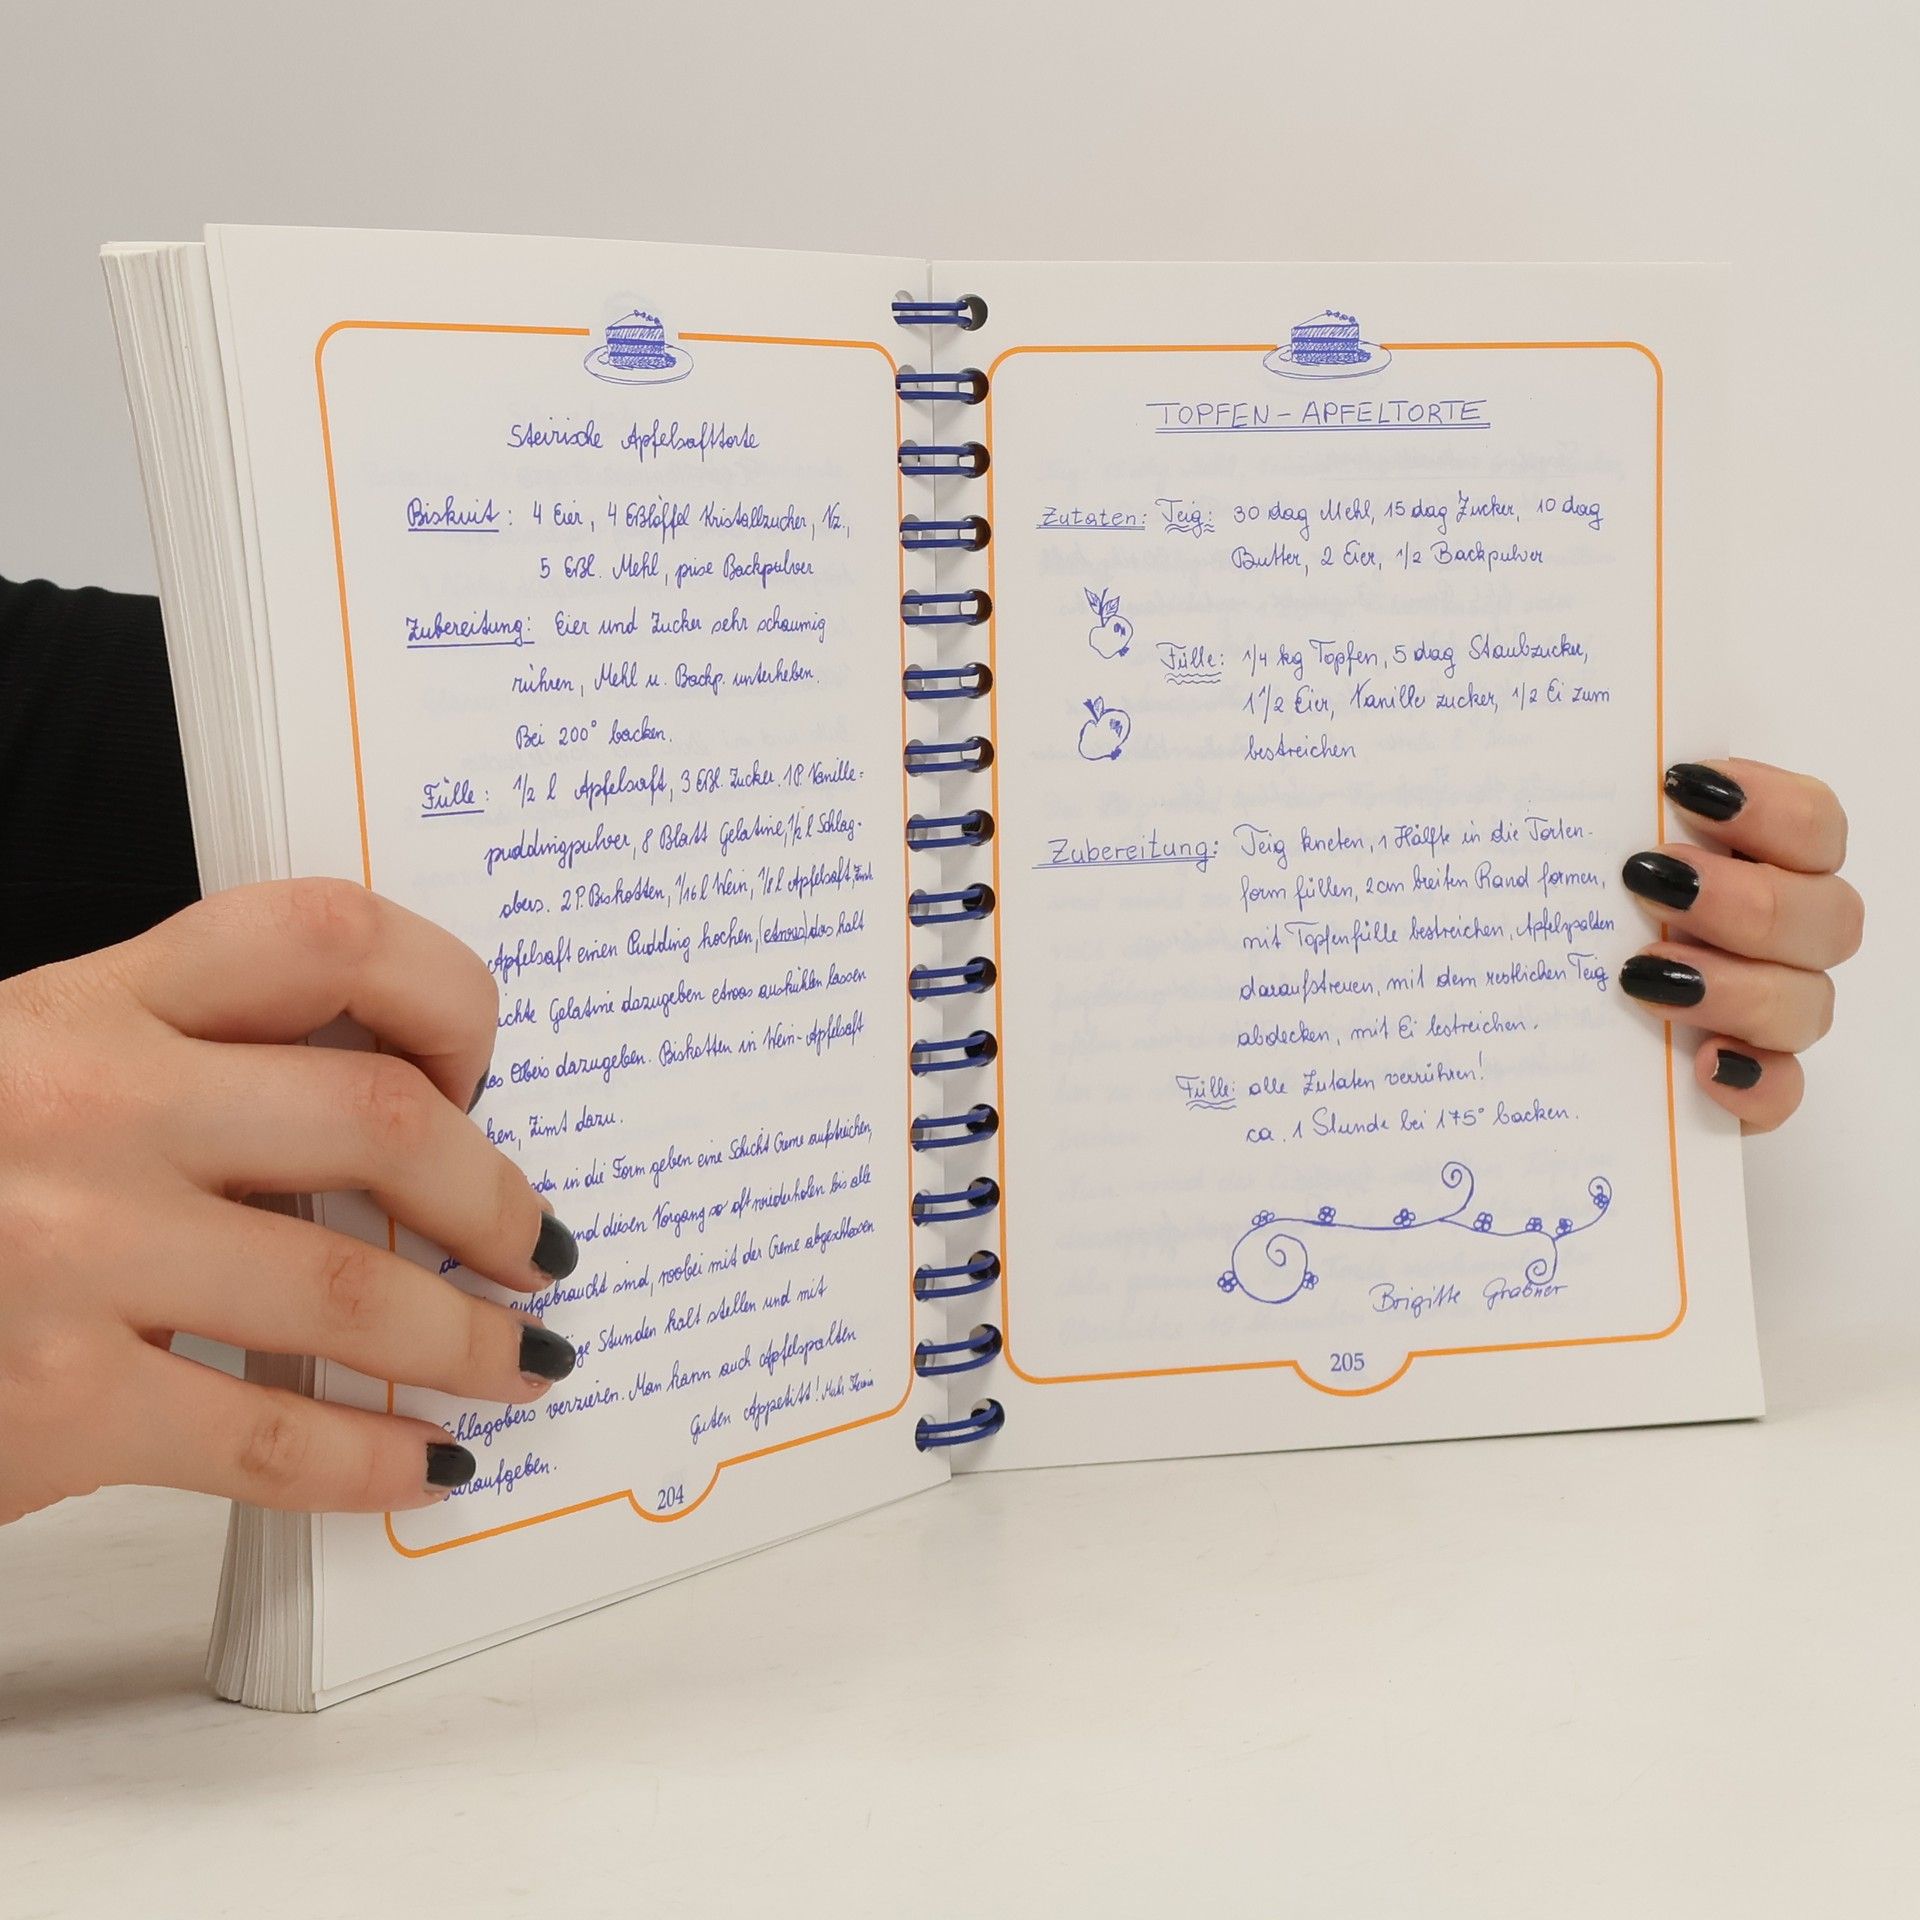 Steirische Apfelsafttorte
Biskuit: 4 Eier, 4 Eßlöffel Kristallzucker, Vz.,
5 Eßl. Mehl, prise Backpulver
Zubereitung: Eier und Zucker sehr schaumig
rühren, Mehl u. Backp. unterheben.
Bei 200° backen.
Fülle: 1/2 l Apfelsaft, 3 Eßl. Zucker. 1P. Vanille=
puddingpulver, 8 Blatt Gelatine, 1/2 l Schlag-
obers. 2 P. Biskotten, 1/16 l Wein, 1/8 l Apfelsaft, Zimt
Apfelsaft einen Pudding kochen, (etwas) das kalt
ichte Gelatine dazugeben etwas auskühlen lassen
Obers dazugeben. Biskotten in Wein-Apfelsaft
ken, Zimt dazu.
in die Form geben eine Schicht Creme aufstreichen,
und diesen Vorgang so oft wiederholen bis alle
aufgebraucht sind, wobei mit der Creme abgeschlossen
ge Stunden kalt stellen und mit
chlagobers verzieren. Man kann auch Apfelspalten
daraufgeben.
Guten Appetit!
204
TOPFEN-APFELTORTE
Zutaten: Teig: 30 dag Mehl, 15 dag Zucker, 10 dag
Butter, 2 Eier, 1/2 Backpulver
Fülle: 1/4 kg Topfen, 5 dag Staubzucker,
1 1/2 Eier, Vanille zucker, 1/2 Ei zum
bestreichen
Zubereitung: Teig kneten, 1 Hälfte in die Torten-
form füllen, 2cm breiten Rand formen,
mit Topfenfülle bestreichen, Apfelspalten
daraufstreuen, mit dem restlichen Teig
abdecken, mit Ei bestreichen.
Fülle: alle Zutaten verrühren!
ca. 1 Stunde bei 175° backen.
Brigitte Grabner
205